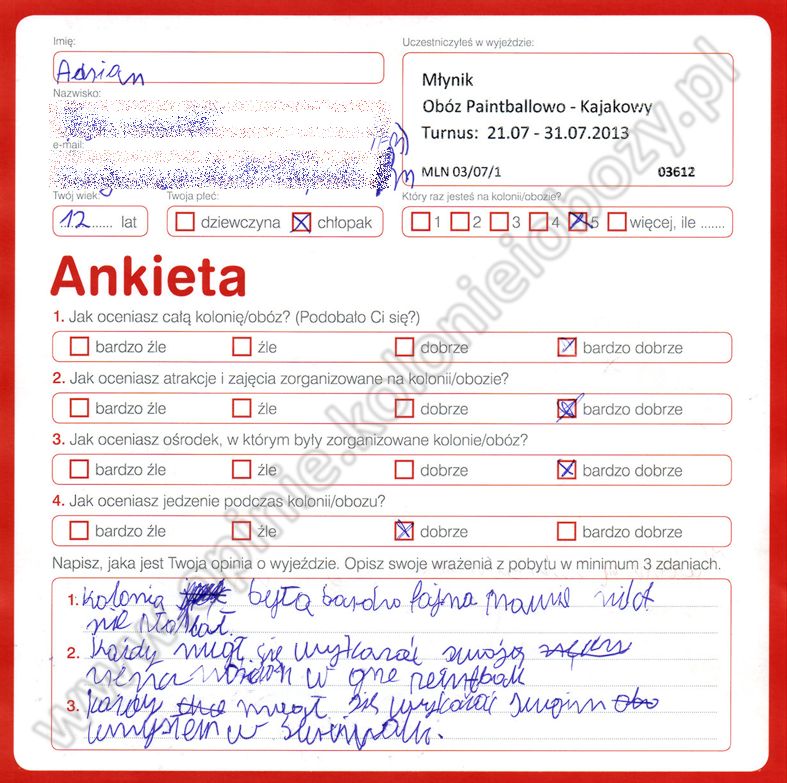 Imię:
Uczestniczyłeś w wyjeździe:
Adrian
Młynik
Nazwisko:
Obóz Paintballowo - Kajakowy
Turnus: 21.07 - 31.07.2013
e-mail:
MLN 03/07/1 03612
Twój wiek: Twoja płeć: Który raz jesteś na kolonii/obozie?
12 ...... lat dziewczyna chłopak 1 2 3 4 5 więcej, ile .......
Ankieta
1. Jak oceniasz całą kolonię/obóz? (Podobało Ci się?)
bardzo źle źle dobrze bardzo dobrze
2. Jak oceniasz atrakcje i zajęcia zorganizowane na kolonii/obozie?
bardzo źle źle dobrze bardzo dobrze
3. Jak oceniasz ośrodek, w którym były zorganizowane kolonie/obóz?
bardzo źle źle dobrze bardzo dobrze
4. Jak oceniasz jedzenie podczas kolonii/obozu?
bardzo źle źle dobrze bardzo dobrze
Napisz, jaka jest Twoja opinia o wyjeździe. Opisz swoje wrażenia z pobytu w minimum 3 zdaniach.
1. kolonia była bardzo fajna
nie
2. każdy mógł się wykazać swoją
w
3. każdy mógł się wykazać swoim
umysłem w
www.opinie.kolonieiobozy.pl